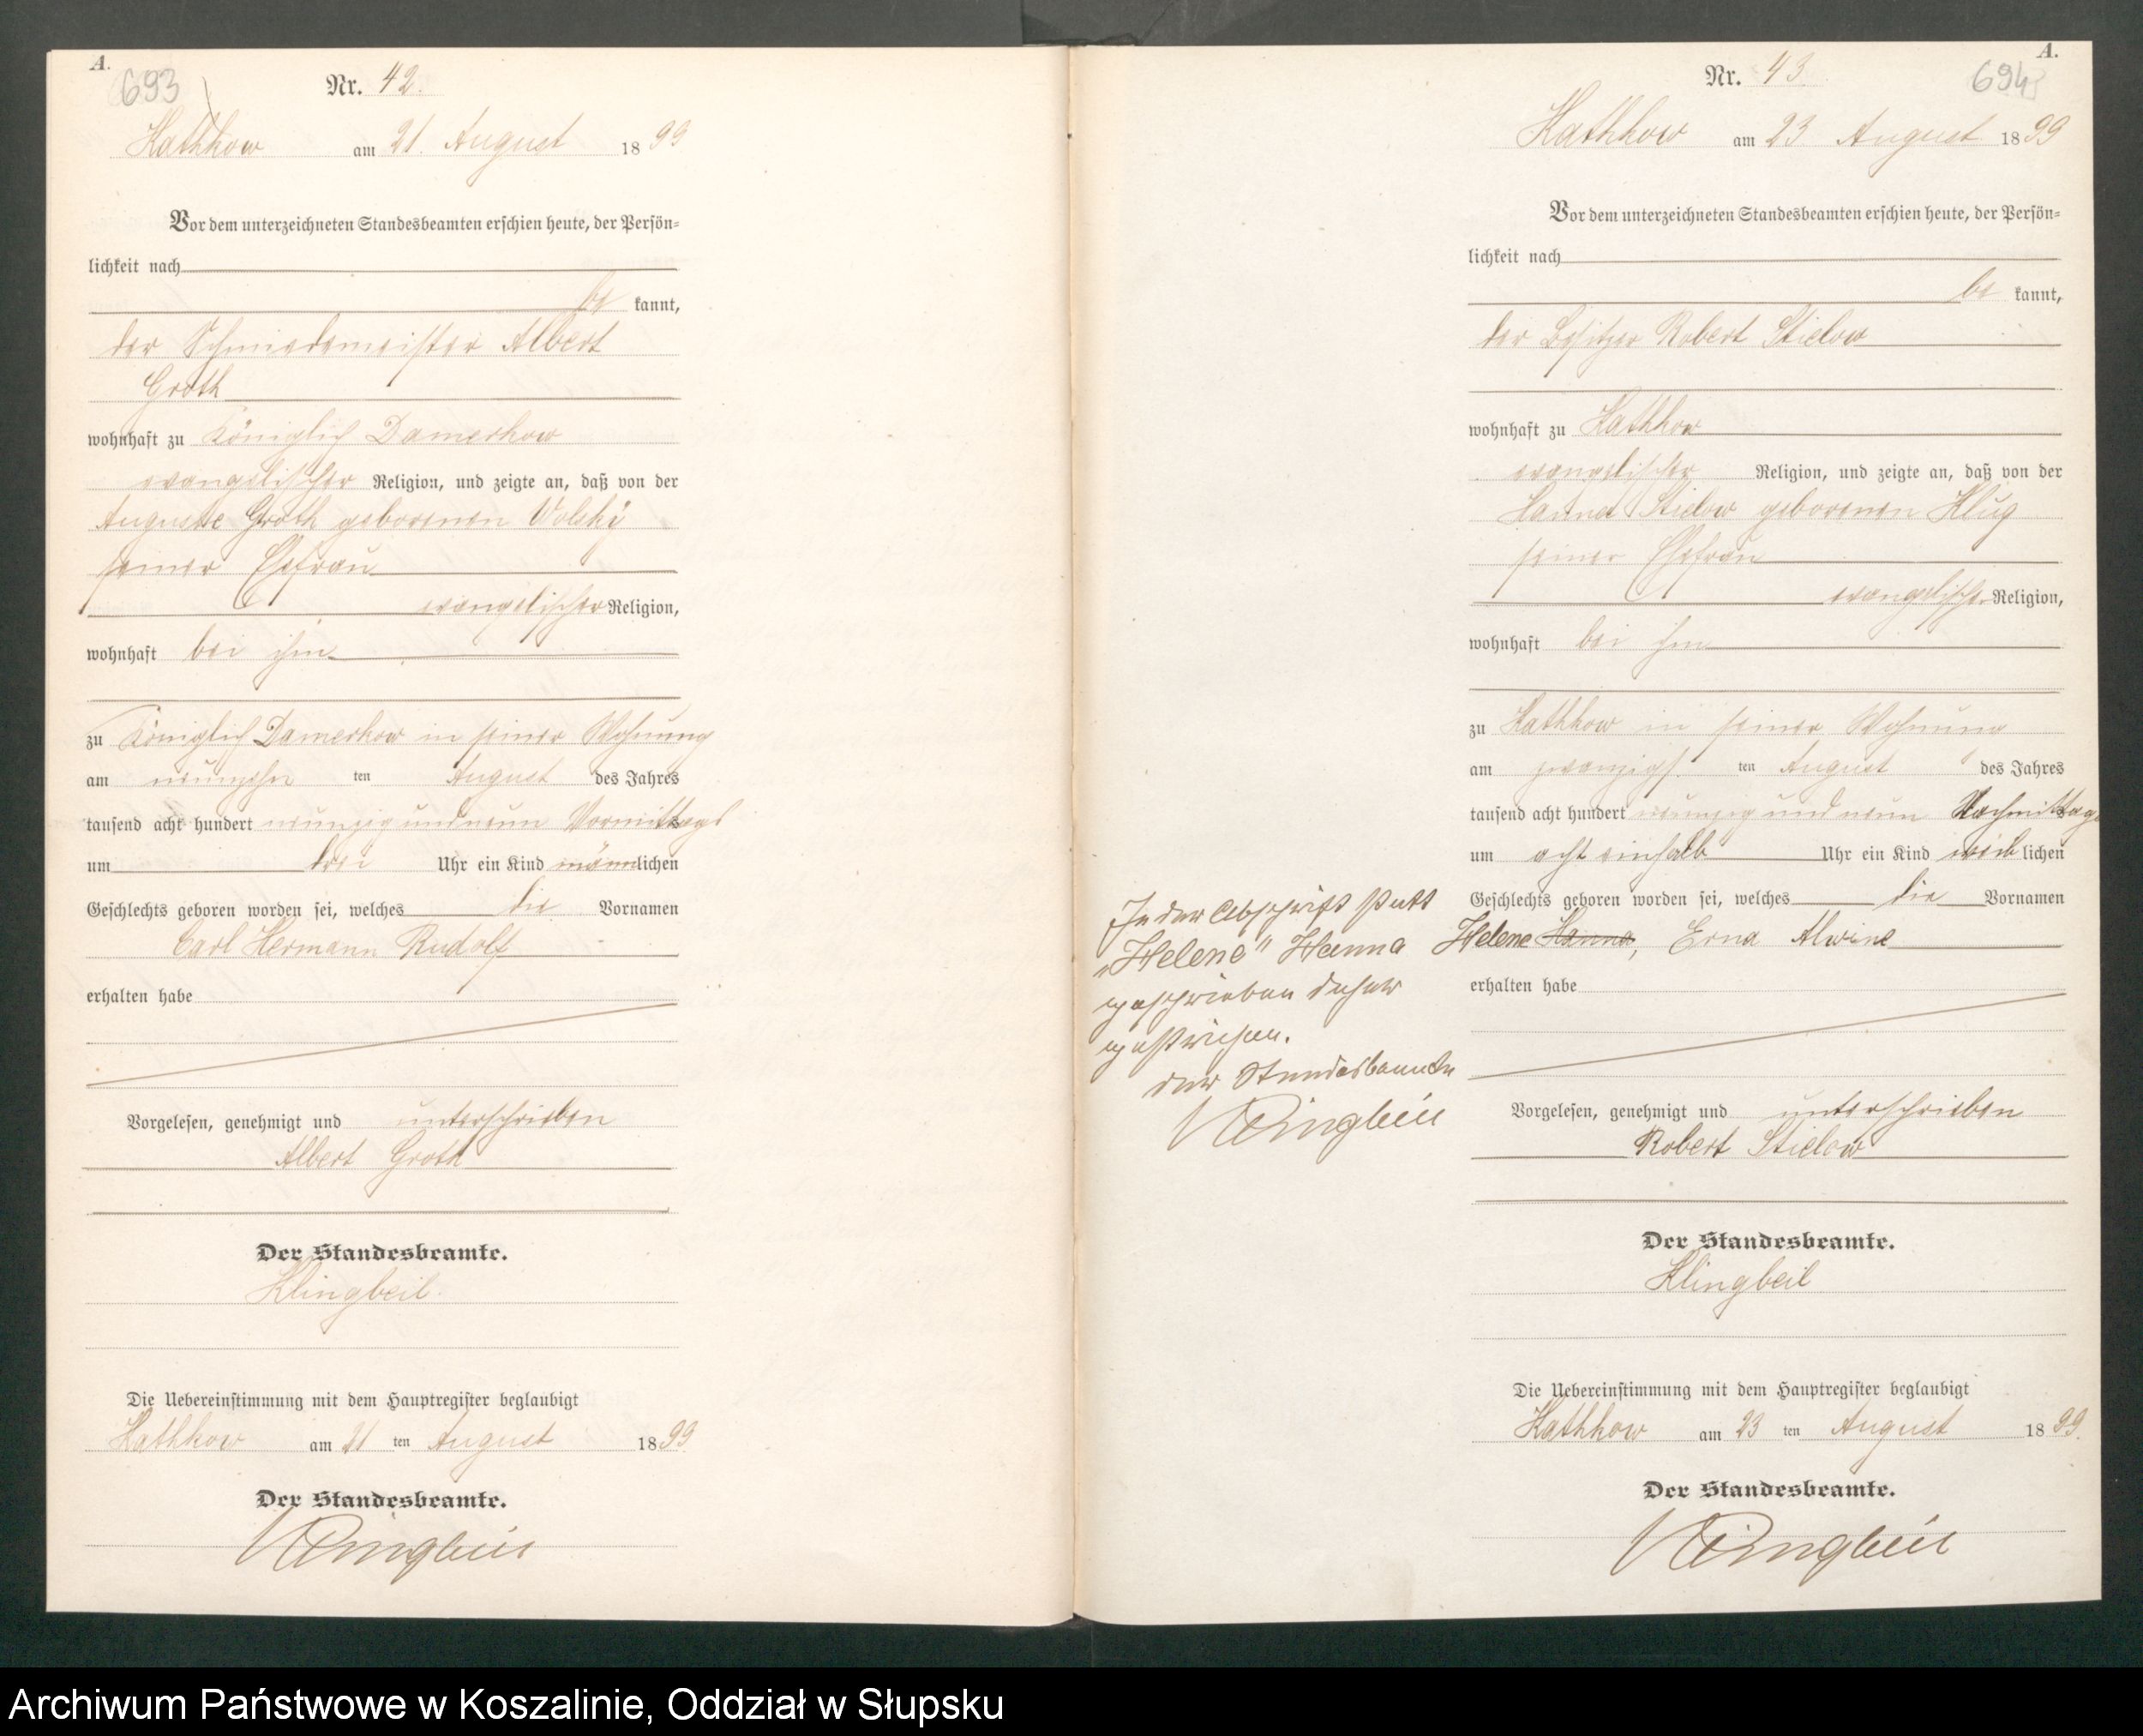 A.
693
Nr. 42.
Kathkow am 21. August 1899
Vor dem unterzeichneten Standesbeamten erschien heute, der Persön=
lichkeit nach
be kannt,
der Schmiedemeister Albert
Groth
wohnhaft zu Königlich Damerkow
evangelischer Religion, und zeigte an, daß von der
Auguste Groth geborenen Wolski
seiner Ehefrau
evangelischer Religion,
wohnhaft bei ihm
zu Königlich Damerkow in seiner Wohnung
am neunzehn ten August des Jahres
tausend acht hundert neunzig und neun Vormittags
um drei Uhr ein Kind männlichen
Geschlechts geboren worden sei, welches die Vornamen
Carl Hermann Rudolf
erhalten habe
Vorgelesen, genehmigt und unterschrieben
Albert Groth
Der Standesbeamte.
Klingbeil.
Die Uebereinstimmung mit dem Hauptregister beglaubigt
Kathkow am 21 ten August 1899.
Der Standesbeamte.
Klingbeil
A.
694
Nr. 43.
Kathkow am 23 August 1899
Vor dem unterzeichneten Standesbeamten erschien heute, der Persön=
lichkeit nach
be kannt,
der Besitzer Robert Stielow
wohnhaft zu Kathkow
evangelischer Religion, und zeigte an, daß von der
Hanna Stielow geborenen Klug
seiner Ehefrau
evangelischer Religion,
wohnhaft bei ihm
zu Kathkow in seiner Wohnung
am zwanzigs ten August des Jahres
tausend acht hundert neunzig und neun Nachmittags
um acht einhalb Uhr ein Kind weiblichen
Geschlechts geboren worden sei, welches die Vornamen
Helene Hanna, Erna Alwine
erhalten habe
In der Abschrift statt
"Helene" Hanna
geschrieben daher
gestrichen.
der Standesbeamte
Klingbeil
Vorgelesen, genehmigt und unterschrieben
Robert Stielow
Der Standesbeamte.
Klingbeil
Die Uebereinstimmung mit dem Hauptregister beglaubigt
Kathkow am 23 ten August 1899.
Der Standesbeamte.
Klingbeil
Archiwum Państwowe w Koszalinie, Oddział w Słupsku